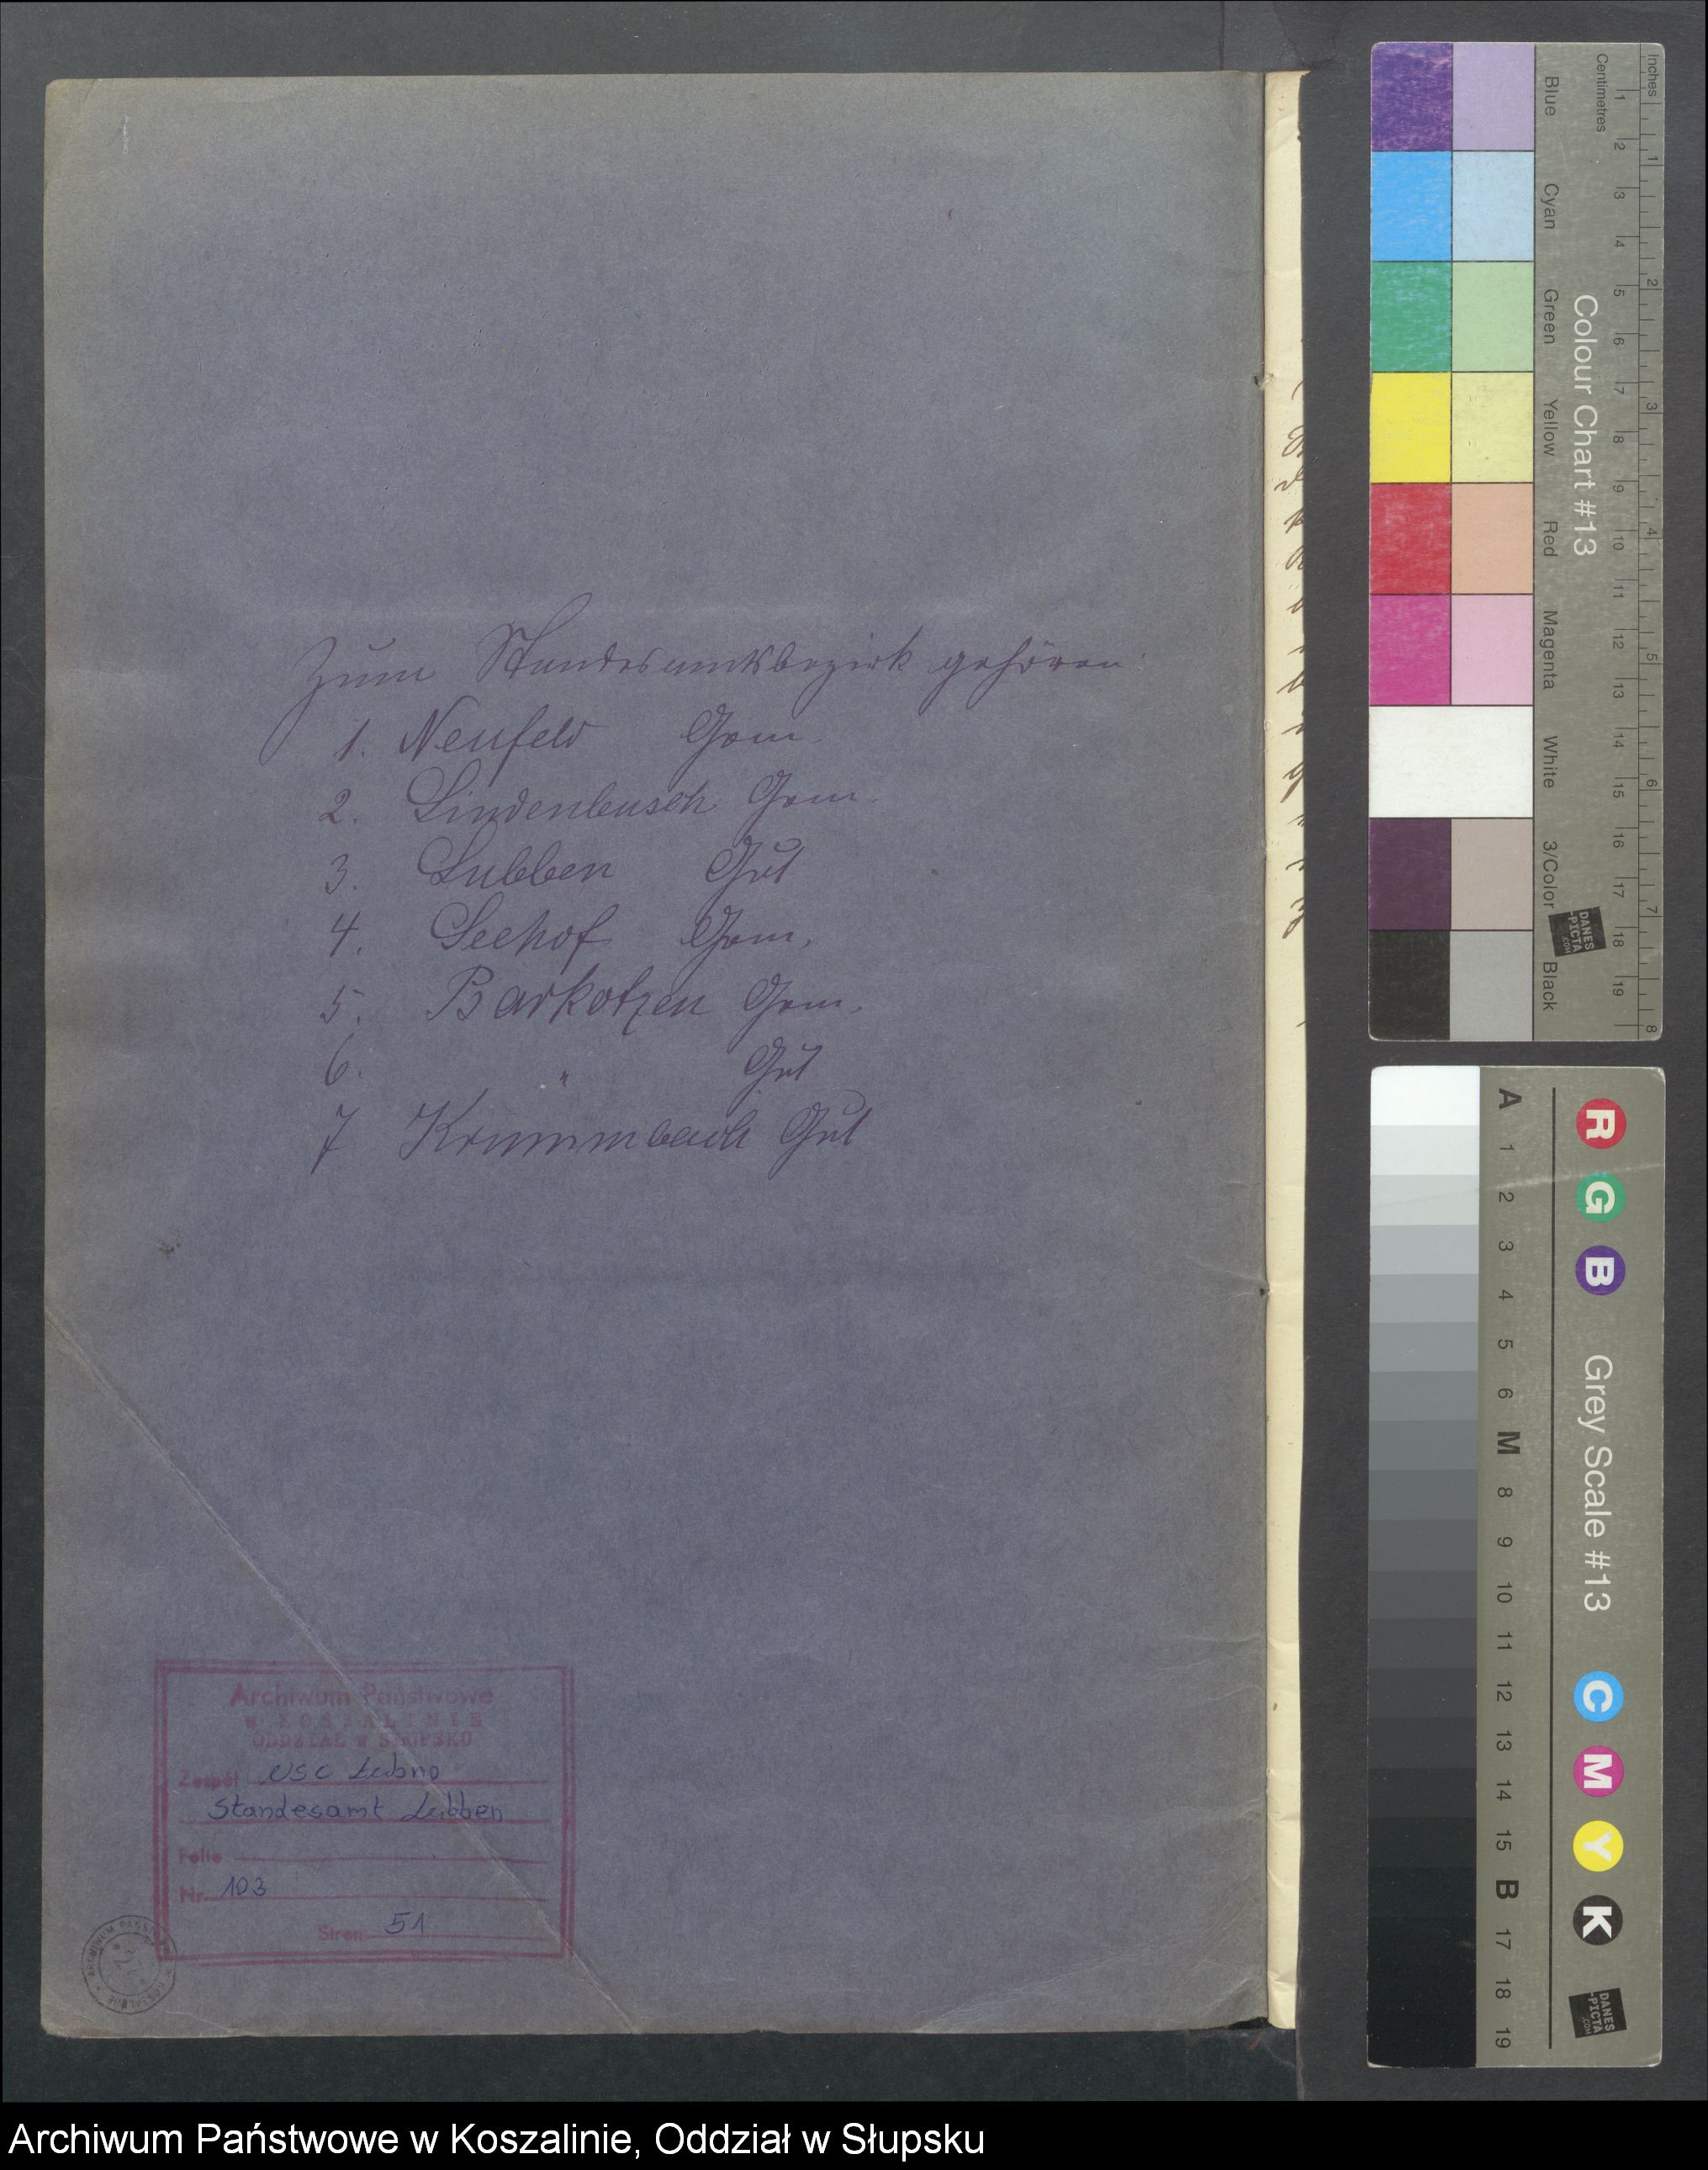 Zum Standesamtsbezirk gehören
1. Neufeld Gem.
2. Lindenbusch Gem.
3. Lubben Gut
4. Seehof Gem.
5. Barkotzen Gem.
6. " Gut
7 Krummbach Gut
Archiwum Państwowe
w KOSZALINIE
ODDZIAŁ w SŁUPSKU
Zespół USC Łubno
Standesamt Lubben
Folio
Nr. 103
Stron 51
Inches
Centimetres
1 2 3 4 5 6 7 8
1 2 3 4 5 6 7 8 9 10 11 12 13 14 15 16 17 18 19
Colour Chart #13
Blue Cyan Green Yellow Red Magenta White 3/Color Black
DANES
-PICTA
.COM
R G B Grey Scale #13 C M Y K
A 1 2 3 4 5 6 M 8 9 10 11 12 13 14 15 B 17 18 19
DANES
-PICTA
.COM
Archiwum Państwowe w Koszalinie, Oddział w Słupsku